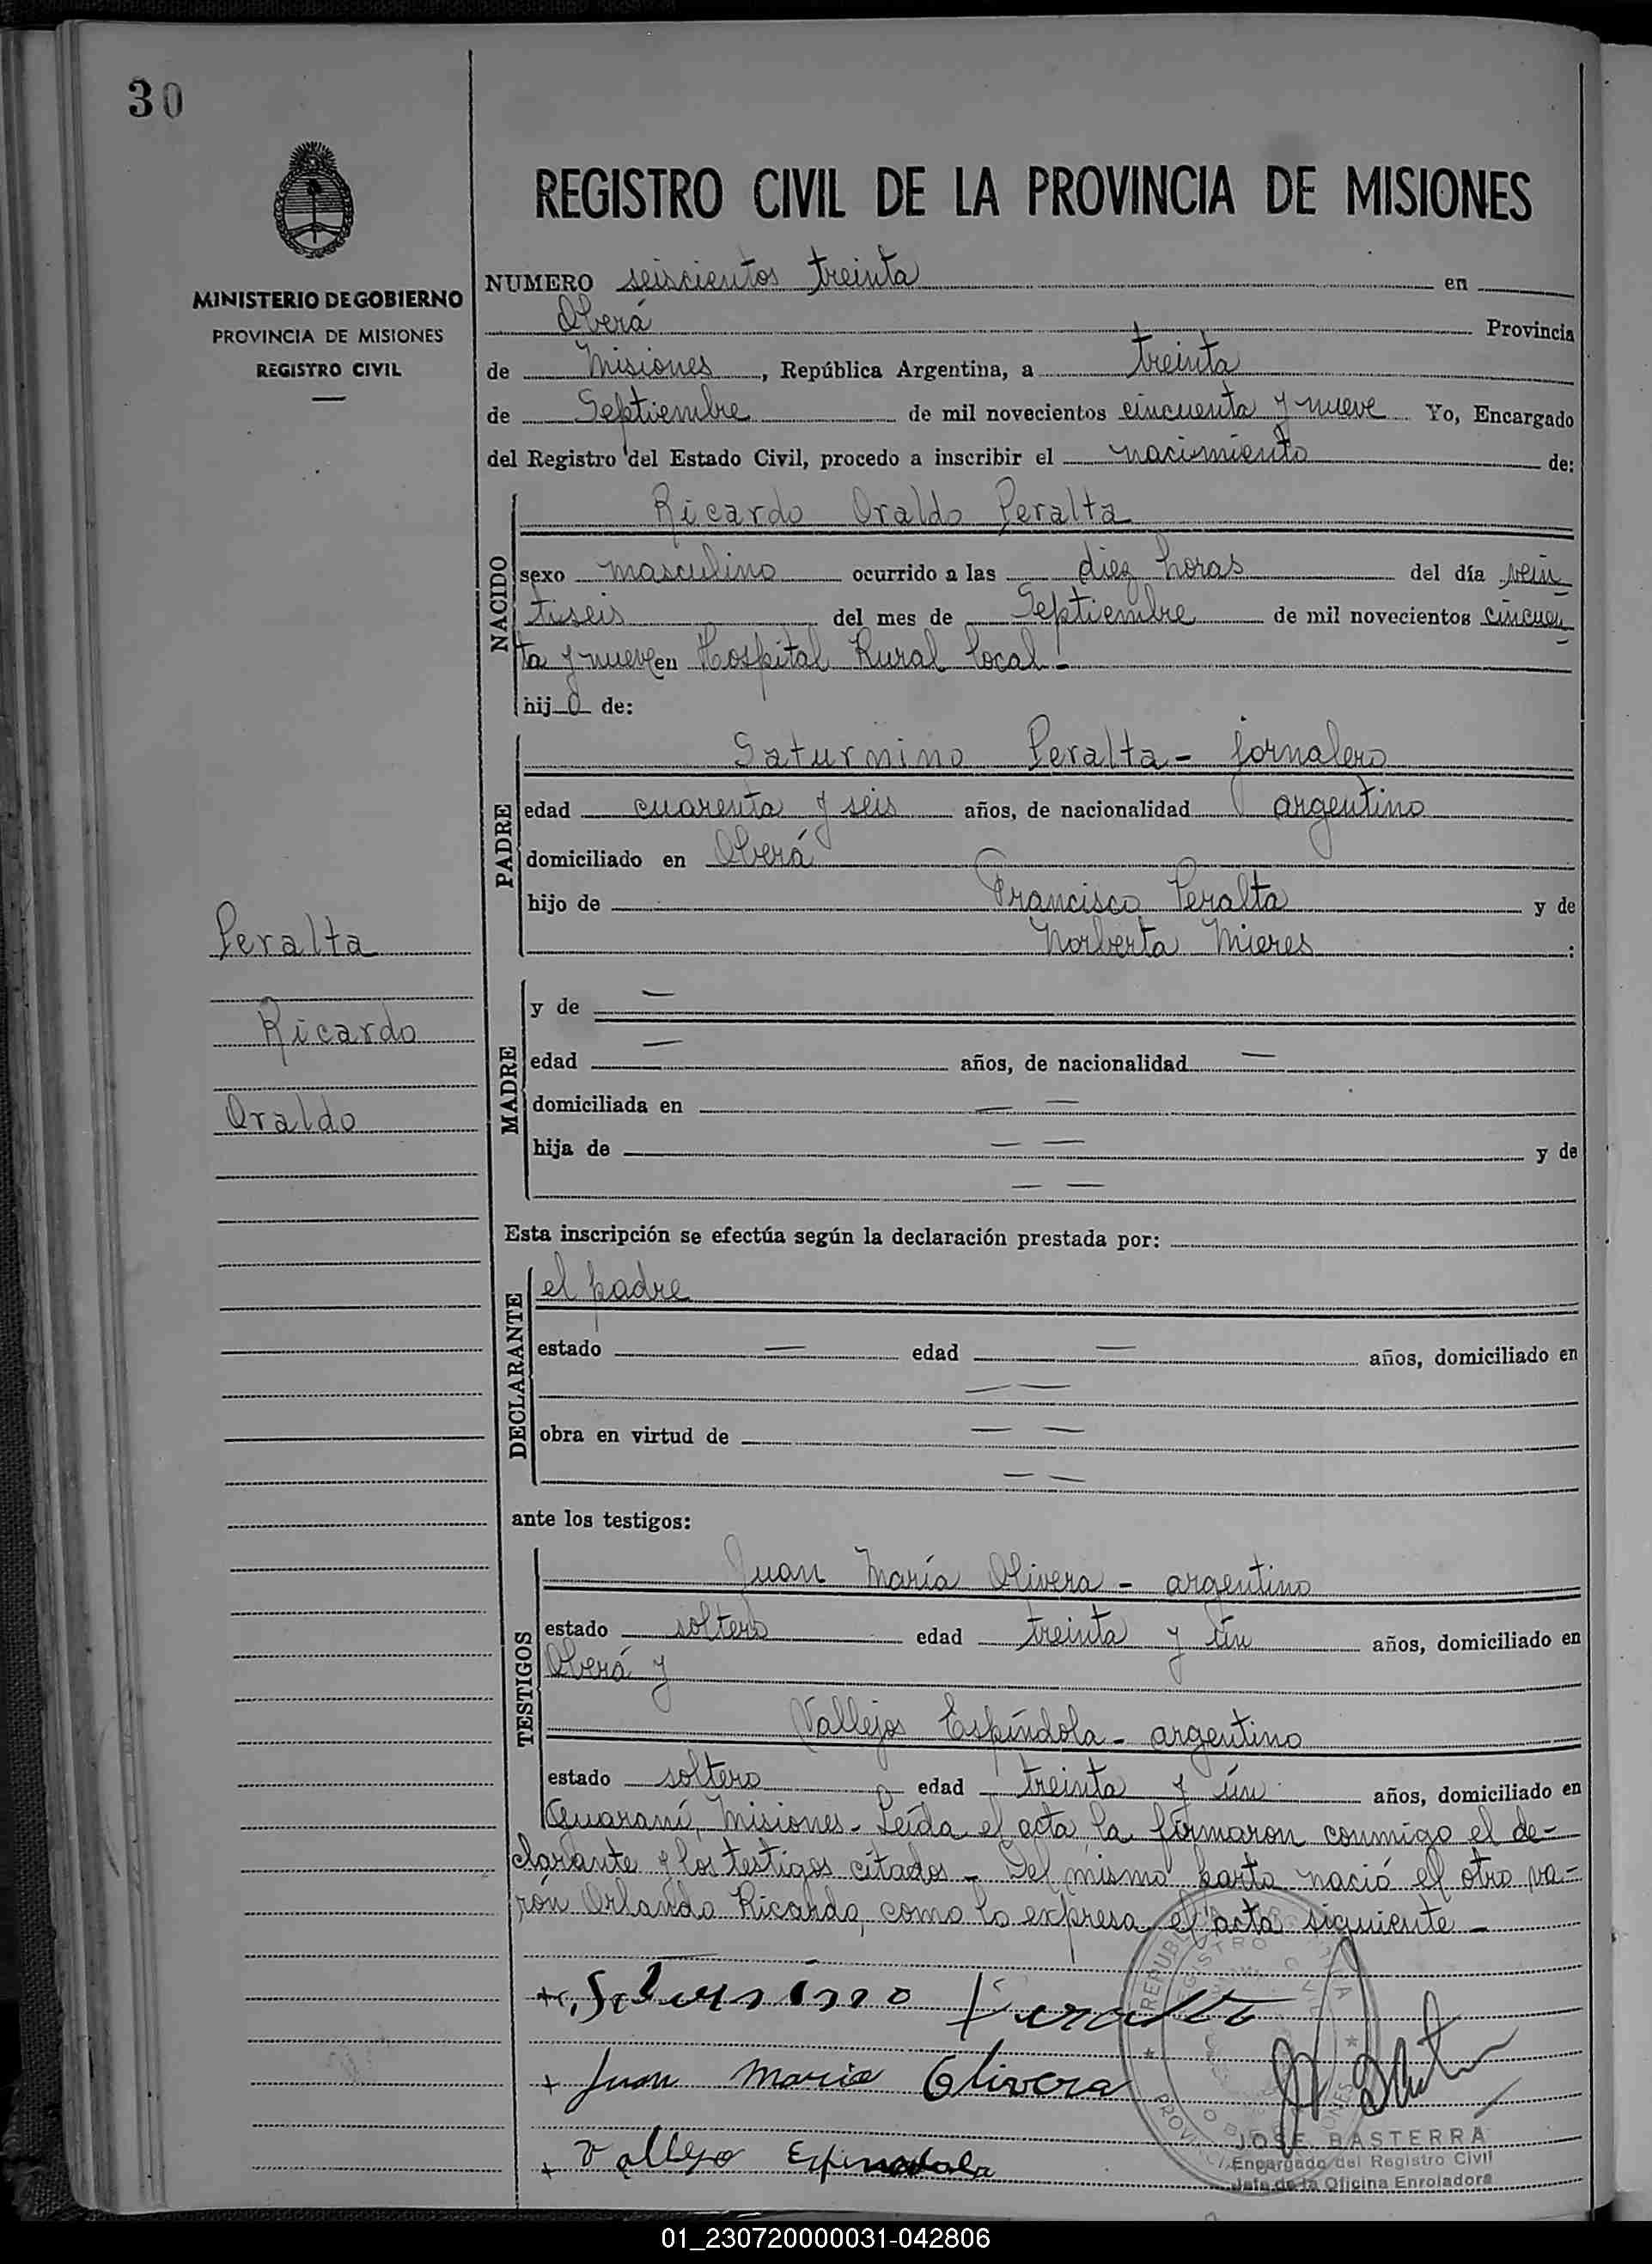 30
REGISTRO CIVIL DE LA PROVINCIA DE MISIONES
MINISTERIO DE GOBIERNO
PROVINCIA DE MISIONES
REGISTRO CIVIL
NUMERO seiscientos treinta en
Oberá Provincia
de Misiones, República Argentina, a treinta
de Septiembre de mil novecientos cincuenta y nueve Yo, Encargado
del Registro del Estado Civil, procedo a inscribir el nacimiento de:
NACIDO
Ricardo Oraldo Peralta
sexo masculino ocurrido a las diez horas del día vein
tiseis del mes de Septiembre de mil novecientos cincuen
ta y nueve en Hospital Rural local.-
hijo de:
PADRE
Saturnino Peralta - jornalero
edad cuarenta y seis años, de nacionalidad argentino
domiciliado en Oberá
hijo de Francisco Peralta y de
Norberta Mieres :
Peralta
Ricardo
Oraldo
MADRE
y de —
edad — años, de nacionalidad —
domiciliada en — —
hija de — — y de
— —
Esta inscripción se efectúa según la declaración prestada por:
DECLARANTE
el padre
estado — edad — años, domiciliado en
— —
obra en virtud de — —
— —
ante los testigos:
TESTIGOS
Juan María Olivera - argentino
estado soltero edad treinta y ún años, domiciliado en
Oberá y
Vallejos Espíndola - argentino
estado soltero edad treinta y ún años, domiciliado en
Guaraní, Misiones - Leída el acta la firmaron conmigo el de-
clarante y los testigos citados - Del mismo parto nació el otro va-
rón Orlando Ricardo, como lo expresa el acta siguiente -
Saturnino Peralta
+ Juan Maria Olivera
+ Vallejo Espindola
JOSE BASTERRA
Encargado del Registro Civil
Jefe de la Oficina Enroladora
01_230720000031-042806